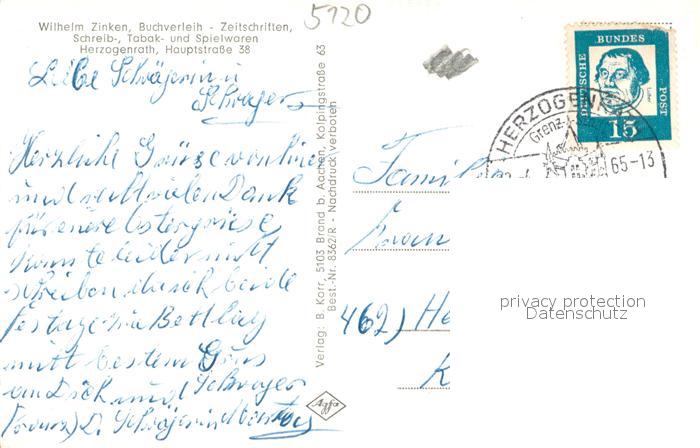 5120
Wilhelm Zinken, Buchverleih - Zeitschriften,
Schreib-, Tabak- und Spielwaren
Herzogenrath, Hauptstraße 38
Liebe Schwägerin u
Schwager
Herzliche Grüsse von hier
und recht vielen Dank
für eure Ostergrüsse
konnte leider nicht
schreiben da ich beide
Festage im Bett lag
mitt besten Grus
an Dich und Schwager
D. Schwägerin
Verlag: B. Korr, 5103 Brand b. Aachen, Kolpingstraße 63
Best.-Nr. 8362/R - Nachdruck verboten
Agfa
DEUTSCHE BUNDESPOST
Luther
15
HERZOGENR
Grenz
65-13
Familie
462) He
K
privacy protection
Datenschutz